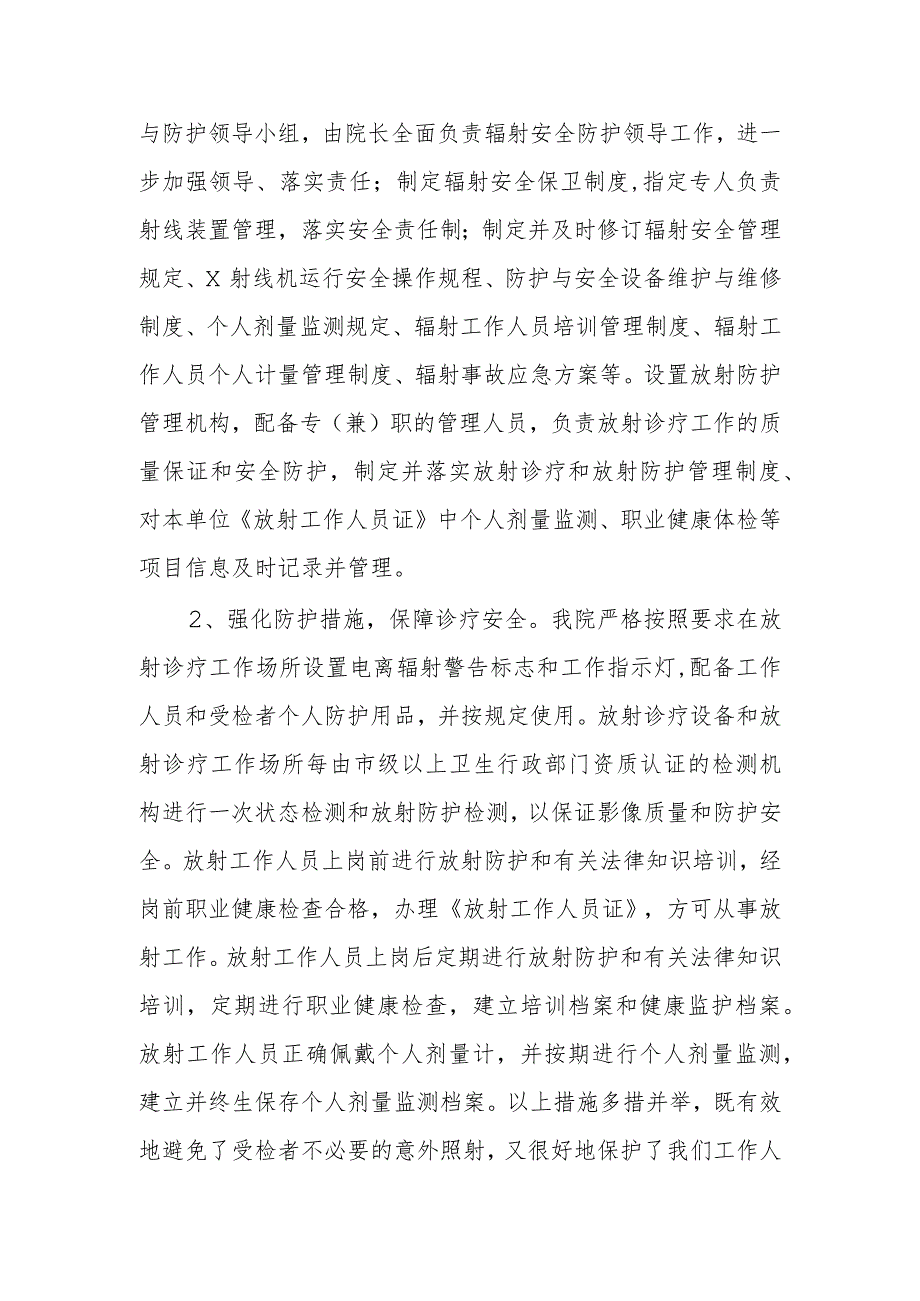 与防护领导小组，由院长全面负责辐射安全防护领导工作，进一
步加强领导、落实责任；制定辐射安全保卫制度,指定专人负责
射线装置管理，落实安全责任制；制定并及时修订辐射安全管理
规定、X 射线机运行安全操作规程、防护与安全设备维护与维修
制度、个人剂量监测规定、辐射工作人员培训管理制度、辐射工
作人员个人计量管理制度、辐射事故应急方案等。设置放射防护
管理机构，配备专（兼）职的管理人员，负责放射诊疗工作的质
量保证和安全防护，制定并落实放射诊疗和放射防护管理制度、
对本单位《放射工作人员证》中个人剂量监测、职业健康体检等
项目信息及时记录并管理。
2、强化防护措施，保障诊疗安全。我院严格按照要求在放
射诊疗工作场所设置电离辐射警告标志和工作指示灯,配备工作
人员和受检者个人防护用品，并按规定使用。放射诊疗设备和放
射诊疗工作场所每由市级以上卫生行政部门资质认证的检测机
构进行一次状态检测和放射防护检测，以保证影像质量和防护安
全。放射工作人员上岗前进行放射防护和有关法律知识培训，经
岗前职业健康检查合格，办理《放射工作人员证》，方可从事放
射工作。放射工作人员上岗后定期进行放射防护和有关法律知识
培训，定期进行职业健康检查，建立培训档案和健康监护档案。
放射工作人员正确佩戴个人剂量计，并按期进行个人剂量监测，
建立并终生保存个人剂量监测档案。以上措施多措并举，既有效
地避免了受检者不必要的意外照射，又很好地保护了我们工作人